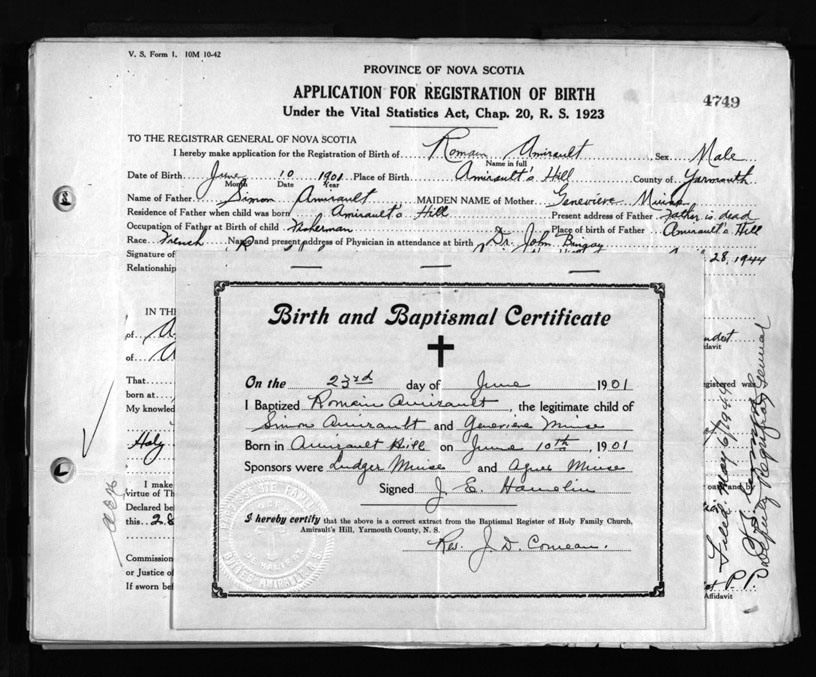 V. S. Form 1. 10M 10-42
PROVINCE OF NOVA SCOTIA
APPLICATION FOR REGISTRATION OF BIRTH
4749
Under the Vital Statistics Act, Chap. 20, R. S. 1923
TO THE REGISTRAR GENERAL OF NOVA SCOTIA
I hereby make application for the Registration of Birth of Romain Amirault Sex Male
Name in full
Date of Birth June 10 1901 Place of Birth Amirault's Hill County of Yarmouth
Month Date Year
Name of Father Simon Amirault MAIDEN NAME of Mother Genevieve Muise
Residence of Father when child was born Amirault's Hill Present address of Father Father is dead
Occupation of Father at Birth of child Fisherman Place of birth of Father Amirault's Hill
Race French Name and present address of Physician in attendance at birth Dr. John Bingay
Signature of 28, 1944
Relationship
IN THE
of
of
davit
That
born at
My knowled
Holy
I make
virtue of Th
Declared be
this 28
Commission
or Justice of
If sworn bef
Affidavit
Birth and Baptismal Certificate
On the 23rd day of June 1901
I Baptized Romain Amirault, the legitimate child of
Simon Amirault and Genevieve Muise
Born in Amirault Hill on June 10th, 1901
Sponsors were Ludger Muise and Agnes Muise
Signed J. E. Hamelin
I hereby certify that the above is a correct extract from the Baptismal Register of Holy Family Church,
Amirault's Hill, Yarmouth County, N. S.
Rev. J. D. Comeau.
Filed. May 6/1944
Deputy Registrar General